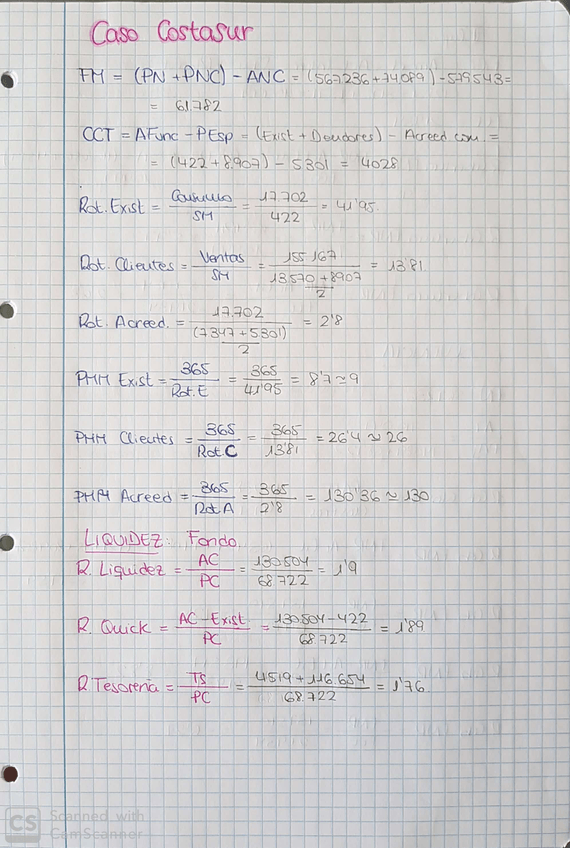 Caso Costasur
FM = (PN + PNC) - ANC = (567236 + 74089) - 579543 =
= 61.782
CCT = AFunc - PEsp = (Exist + Deudores) - Acreed com. =
= (422 + 8.907) - 5301 = 4028
Rot. Exist = Consumo / SM = 17.702 / 422 = 41'95
Rot. Clientes = Ventas / SM = 155167 / (13.570 + 8907 / 2) = 13'81
Rot. Acreed. = 17.702 / ((7347 + 5301) / 2) = 2'8
PMM Exist = 365 / Rot.E = 365 / 41'95 = 8'7 ≃ 9
PMM Clientes = 365 / Rot C = 365 / 13'81 = 26'4 ≈ 26
PMM Acreed = 365 / Rot A = 365 / 2'8 = 130'36 ≈ 130
LIQUIDEZ: Fondo
R. Liquidez = AC / PC = 130504 / 68.722 = 1'9
R. Quick = AC - Exist / PC = 130504 - 422 / 68.722 = 1'89
R Tesorería = TS / PC = 4519 + 116.654 / 68.722 = 1'76
CS Scanned with
CamScanner